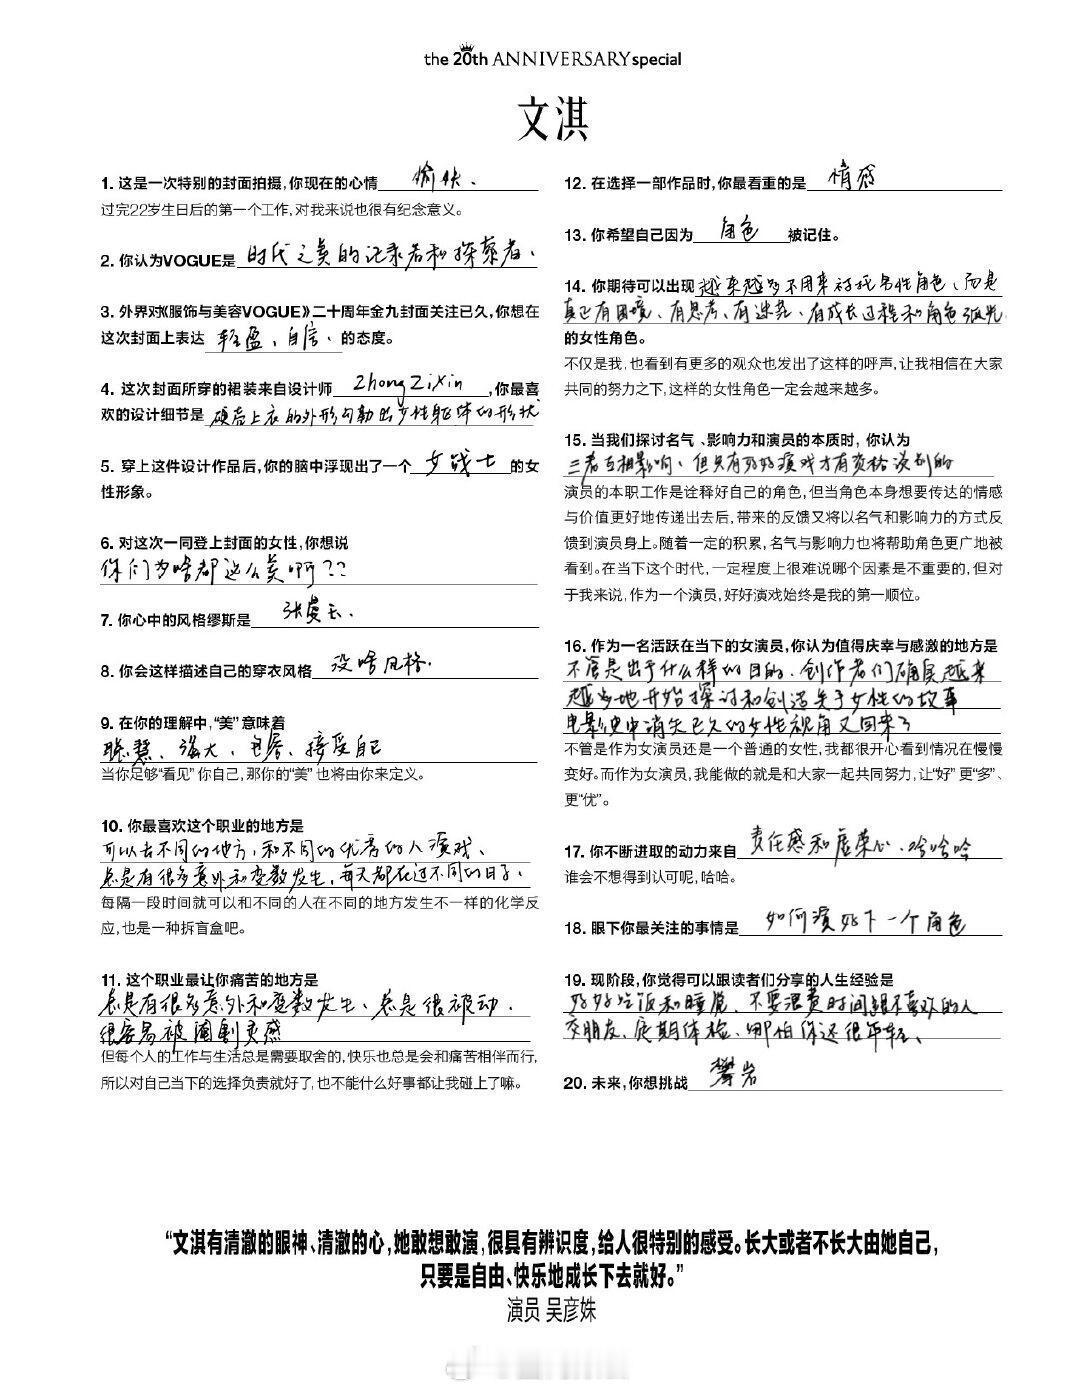 the 20th ANNIVERSARY special
文淇
1. 这是一次特别的封面拍摄,你现在的心情 愉快、
过完22岁生日后的第一个工作,对我来说也很有纪念意义。
2. 你认为VOGUE是 时代之美的记录者和探索者、
3. 外界对《服饰与美容VOGUE》二十周年金九封面关注已久,你想在
这次封面上表达 轻盈、自信、 的态度。
4. 这次封面所穿的裙装来自设计师 Zhong Zixin ,你最喜
欢的设计细节是 硬壳上衣的外形勾勒出女性躯体的形状
5. 穿上这件设计作品后,你的脑中浮现出了一个 女战士 的女
性形象。
6. 对这次一同登上封面的女性,你想说
你们为啥都这么美啊??
7. 你心中的风格缪斯是 张曼玉、
8. 你会这样描述自己的穿衣风格 没啥风格.
9. 在你的理解中,“美”意味着
聪慧、强大、包容、接受自己
当你足够“看见”你自己,那你的“美”也将由你来定义。
10. 你最喜欢这个职业的地方是
可以去不同的地方,和不同的优秀的人演戏、
总是有很多意外和变数发生,每天都在过不同的日子、
每隔一段时间就可以和不同的人在不同的地方发生不一样的化学反
应,也是一种拆盲盒吧。
11. 这个职业最让你痛苦的地方是
总是有很多意外和变数发生、总是很被动、
很容易被阉割灵感
但每个人的工作与生活总是需要取舍的,快乐也总是会和痛苦相伴而行,
所以对自己当下的选择负责就好了,也不能什么好事都让我碰上了嘛。
12. 在选择一部作品时,你最看重的是 情感
13. 你希望自己因为 角色 被记住。
14. 你期待可以出现 越来越多不用来衬托男性角色、而是
真正有困境、有思考、有迷茫、有成长过程和角色弧光
的女性角色。
不仅是我,也看到有更多的观众也发出了这样的呼声,让我相信在大家
共同的努力之下,这样的女性角色一定会越来越多。
15. 当我们探讨名气、影响力和演员的本质时,你认为
三者互相影响、但只有好好演戏才有资格谈别的
演员的本职工作是诠释好自己的角色,但当角色本身想要传达的情感
与价值更好地传递出去后,带来的反馈又将以名气和影响力的方式反
馈到演员身上。随着一定的积累,名气与影响力也将帮助角色更广地被
看到。在当下这个时代,一定程度上很难说哪个因素是不重要的,但对
于我来说,作为一个演员,好好演戏始终是我的第一顺位。
16. 作为一名活跃在当下的女演员,你认为值得庆幸与感激的地方是
不管是出于什么样的目的、创作者们确实越来
越多地开始探讨和创造关于女性的故事
电影史中消失已久的女性视角又回来了
不管是作为女演员还是一个普通的女性,我都很开心看到情况在慢慢
变好。而作为女演员,我能做的就是和大家一起共同努力,让“好”更“多”、
更“优”。
17. 你不断进取的动力来自 责任感和虚荣心、哈哈哈
谁会不想得到认可呢,哈哈。
18. 眼下你最关注的事情是 如何演好下一个角色
19. 现阶段,你觉得可以跟读者们分享的人生经验是
好好吃饭和睡觉、不要浪费时间跟不喜欢的人
交朋友、定期体检、哪怕你还很年轻、
20. 未来,你想挑战 攀岩
“文淇有清澈的眼神、清澈的心,她敢想敢演,很具有辨识度,给人很特别的感受。长大或者不长大由她自己,
只要是自由、快乐地成长下去就好。”
演员 吴彦姝